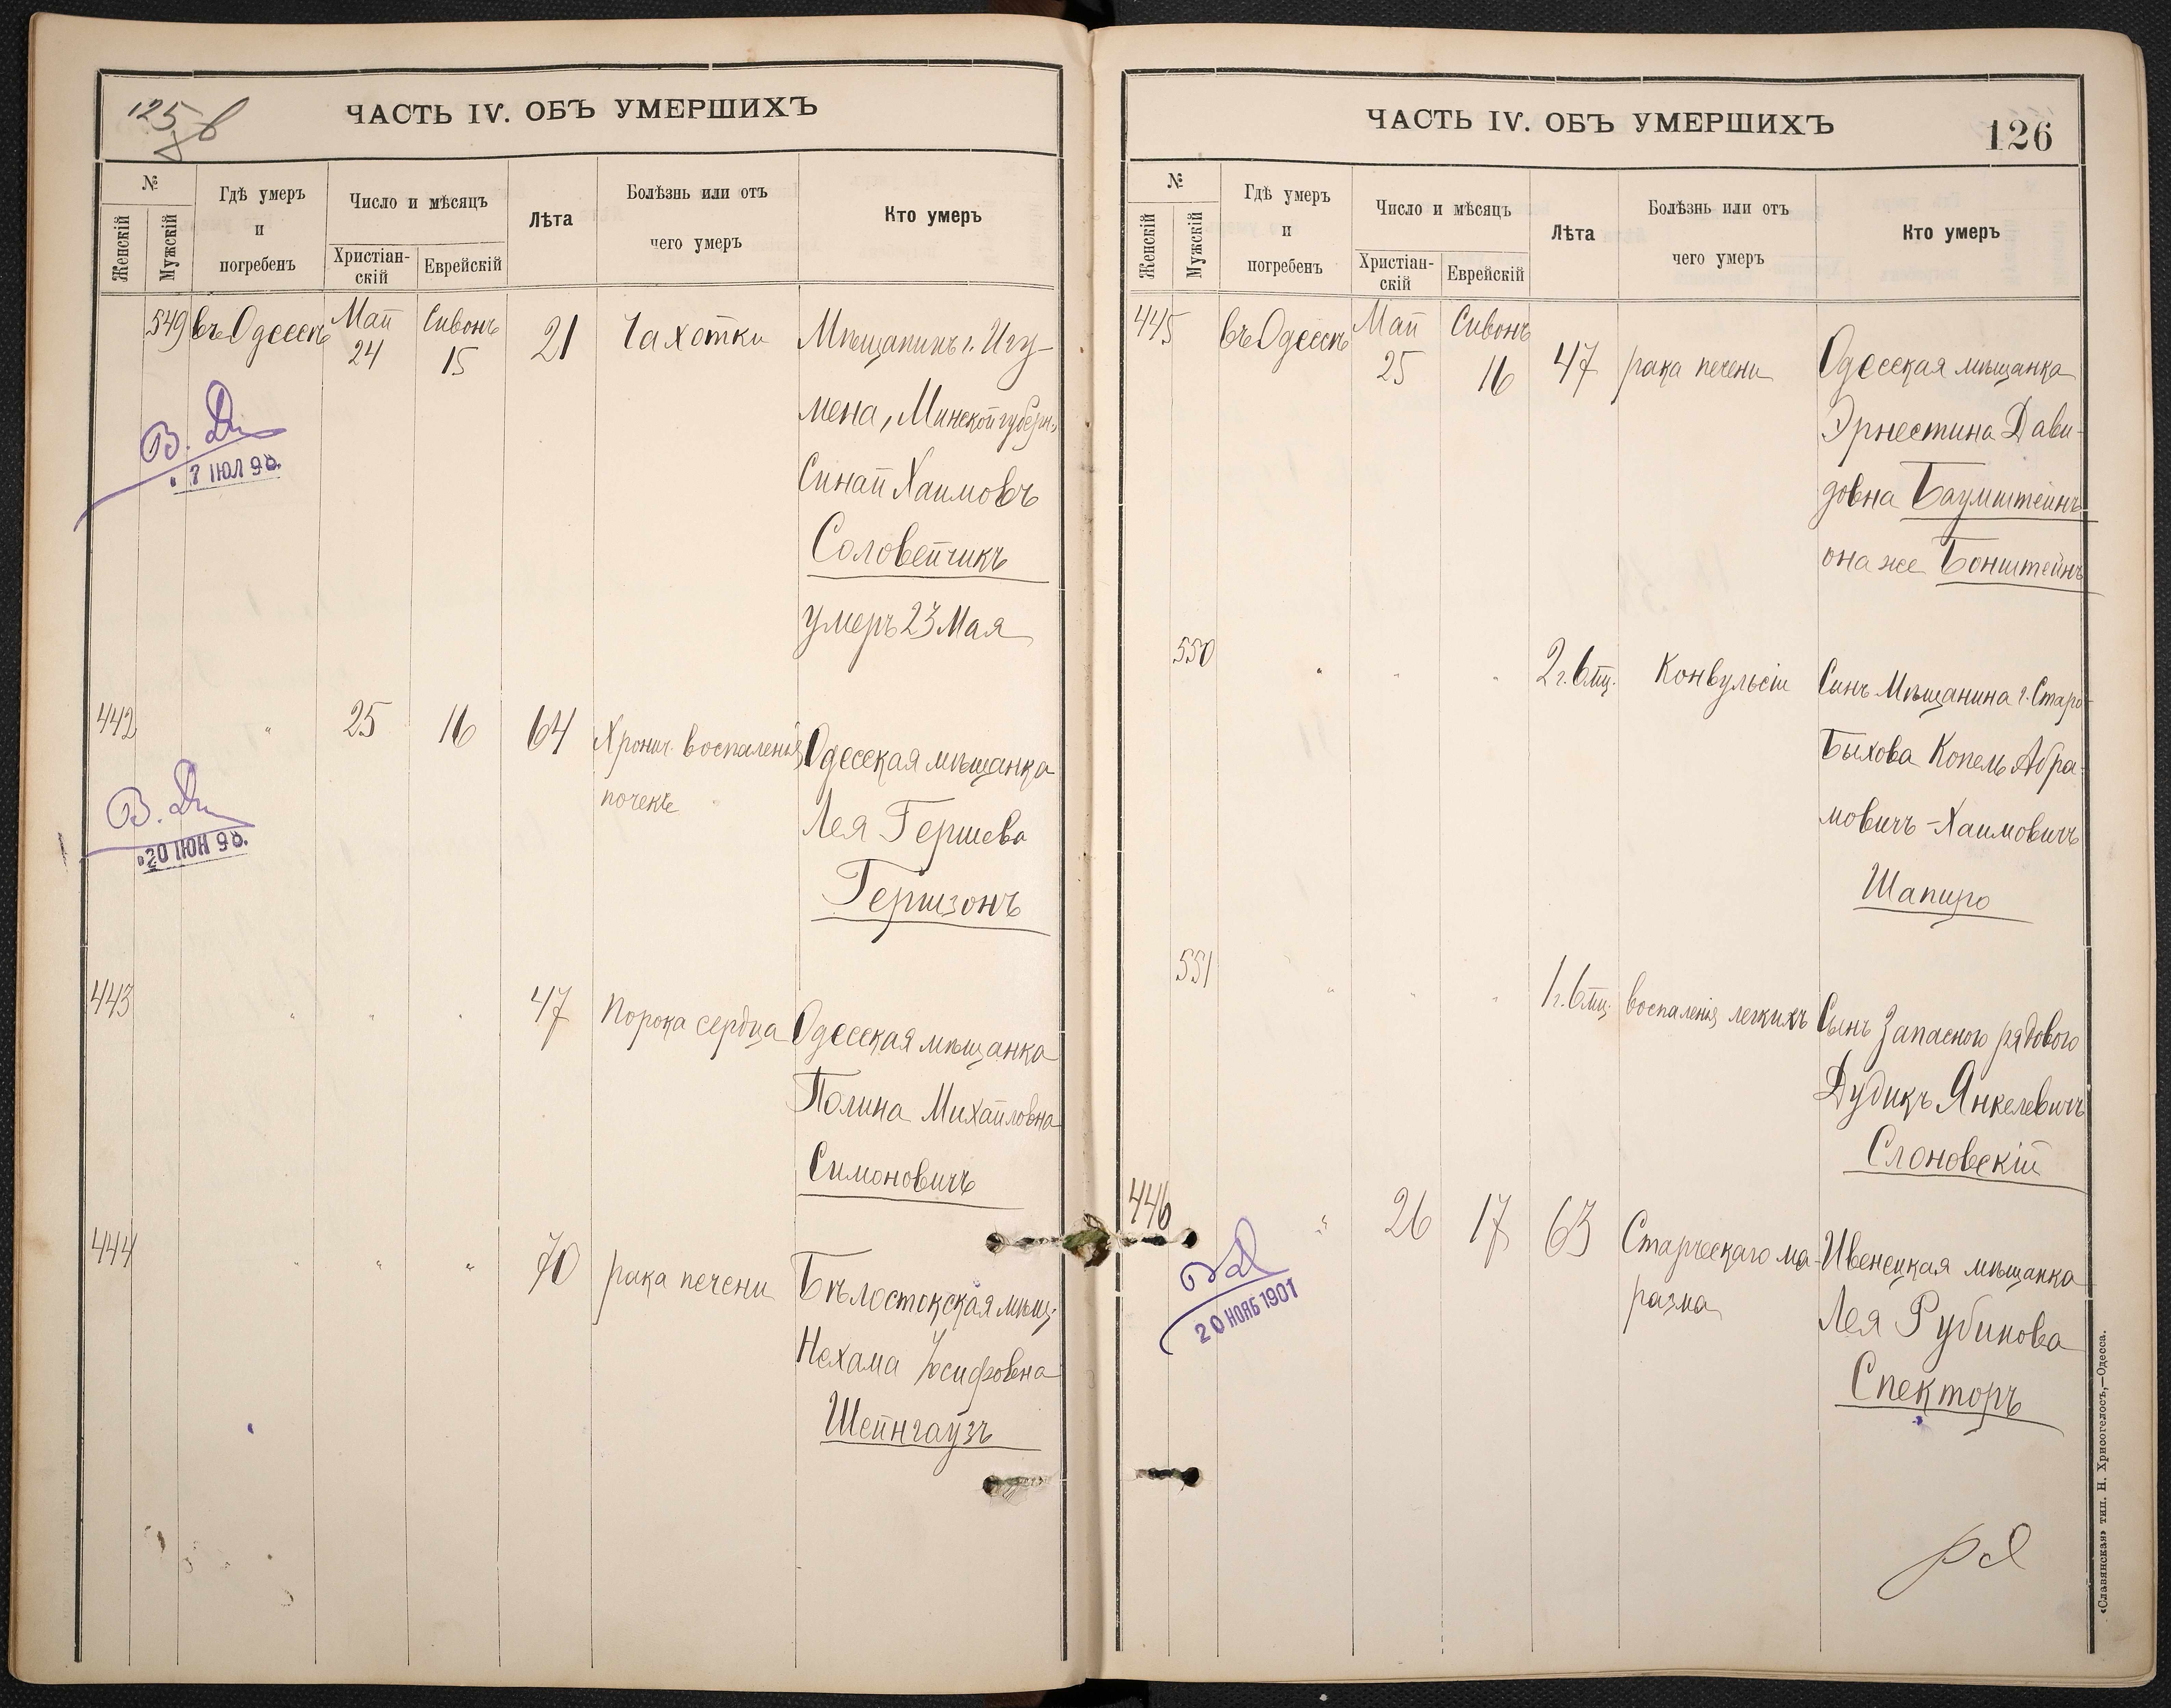 125
ЧАСТЬ IV. ОБЪ УМЕРШИХЪ
№
Женскій
Мужскій
Гдѣ умеръ
и
погребенъ
Число и мѣсяцъ
Христіан-
скій
Еврейскій
Лѣта
Болѣзнь или отъ
чего умеръ
Кто умеръ
549 въ Одессѣ Май 24 Сивонъ 15 21 Чахотки Мѣщанинъ г. Игу-
мена, Минской губерн.
Синай Хаимовъ
Соловейчикъ
умеръ 23 Мая
В. Ди
7 ІЮЛ 98.
442 " 25 16 64 Хронич. воспаленія Одесская мѣщанка
почекъ
Лея Гершева
Гершзонъ
В. Ди
20 ІЮН 98.
443 " " " 47 Порока сердца Одесская мѣщанка
Полина Михайловна
Симоновичъ
444 " " " 70 рака печени Бѣлостокская мѣщ.
Нехама Іосифовна
Шейнгаузъ
ЧАСТЬ IV. ОБЪ УМЕРШИХЪ
126
№
Женскій
Мужскій
Гдѣ умеръ
и
погребенъ
Число и мѣсяцъ
Христіан-
скій
Еврейскій
Лѣта
Болѣзнь или отъ
чего умеръ
Кто умеръ
445 въ Одессѣ Май 25 Сивонъ 16 47 рака печени Одесская мѣщанка
Эрнестина Дави-
довна Баумштейнъ
она же Бонштейнъ
550 " " " 2 г. 6 мц. Конвульсіи Сынъ Мѣщанина г. Старо-
Быхова Копель Абра-
мовичъ-Хаимовичъ
Шапиро
551 " " " 1 г. 6 мц. воспаленія легкихъ Сынъ Запасного рядового
Дудикъ Янкелевичъ
Слоновскій
446 " 26 17 63 Старческаго ма- Ивенецкая мѣщанка
разма
Лея Рубинова
Спекторъ
20 НОЯБ 1901
«Славянская» тип. Н. Хрисогелосъ,—Одесса.